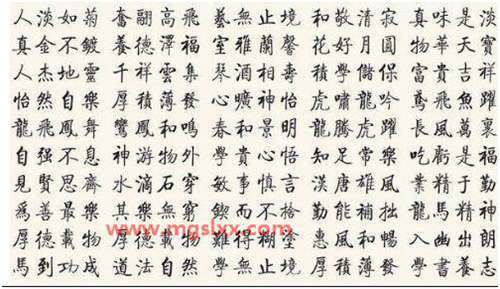 人淡如菊奮翮高飛藝無止境和敬清寂真味是淡
真金不鍍養德澤福室雅蘭馨花好月圓物華天寶
人杰地靈千祥雲集琴酒相壽積學儲保富貴吉祥
怡然自樂厚積薄發心曠神怡虎嘯龍吟鳶飛魚躍
龍飛鳳舞鸞鳳和鳴春和景明龍騰虎躍長風萬裏
自强不息神游物外學貴心悟知足常樂吃虧是福
見賢思齊水滴石穿敏事慎言漢唐雄風業精于勤
爲善最樂其樂無窮鍥而不捨勤能補拙龍馬精神
www.mgslxx.com
厚德載物厚物難得糊塗惠風和暢入幽出朗
馬到功成道法自然學無止境厚積薄發學養